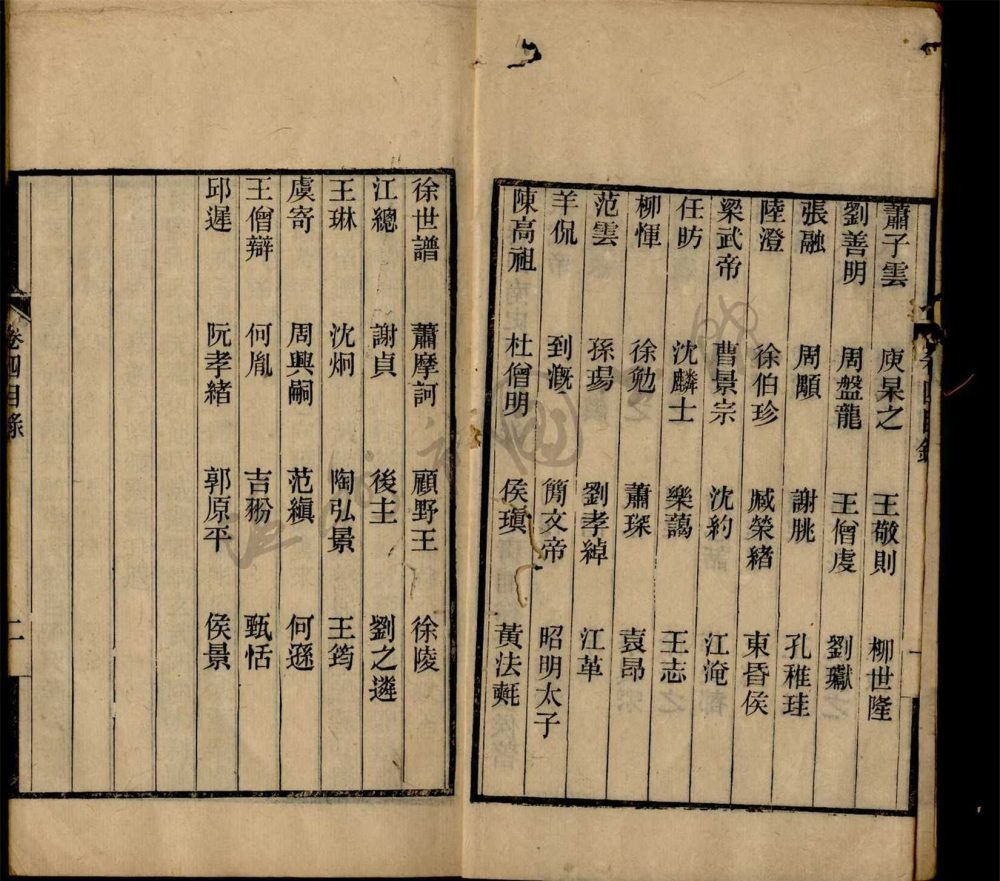 蕭子雲 庾杲之 王敬則 柳世隆
劉善明 周盤龍 王僧虔 劉瓛
張融 周顒 謝朓 孔稚珪
陸澄 徐伯珍 臧榮緒 東昏侯
梁武帝 曹景宗 沈約 江淹
任昉 沈麟士 樂藹 王志
柳惲 徐勉 蕭琛 袁昂
范雲 孫瑒 劉孝綽 江革
羊侃 到溉 簡文帝 昭明太子
陳高祖 杜僧明 侯瑱 黃法𣰰
徐世譜 蕭摩訶 顧野王 徐陵
江總 謝貞 後主 劉之遴
王琳 沈炯 陶弘景 王筠
虞寄 周興嗣 范縝 何遜
王僧辯 何胤 吉翂 甄恬
邱遲 阮孝緒 郭原平 侯景
卷四目錄 二